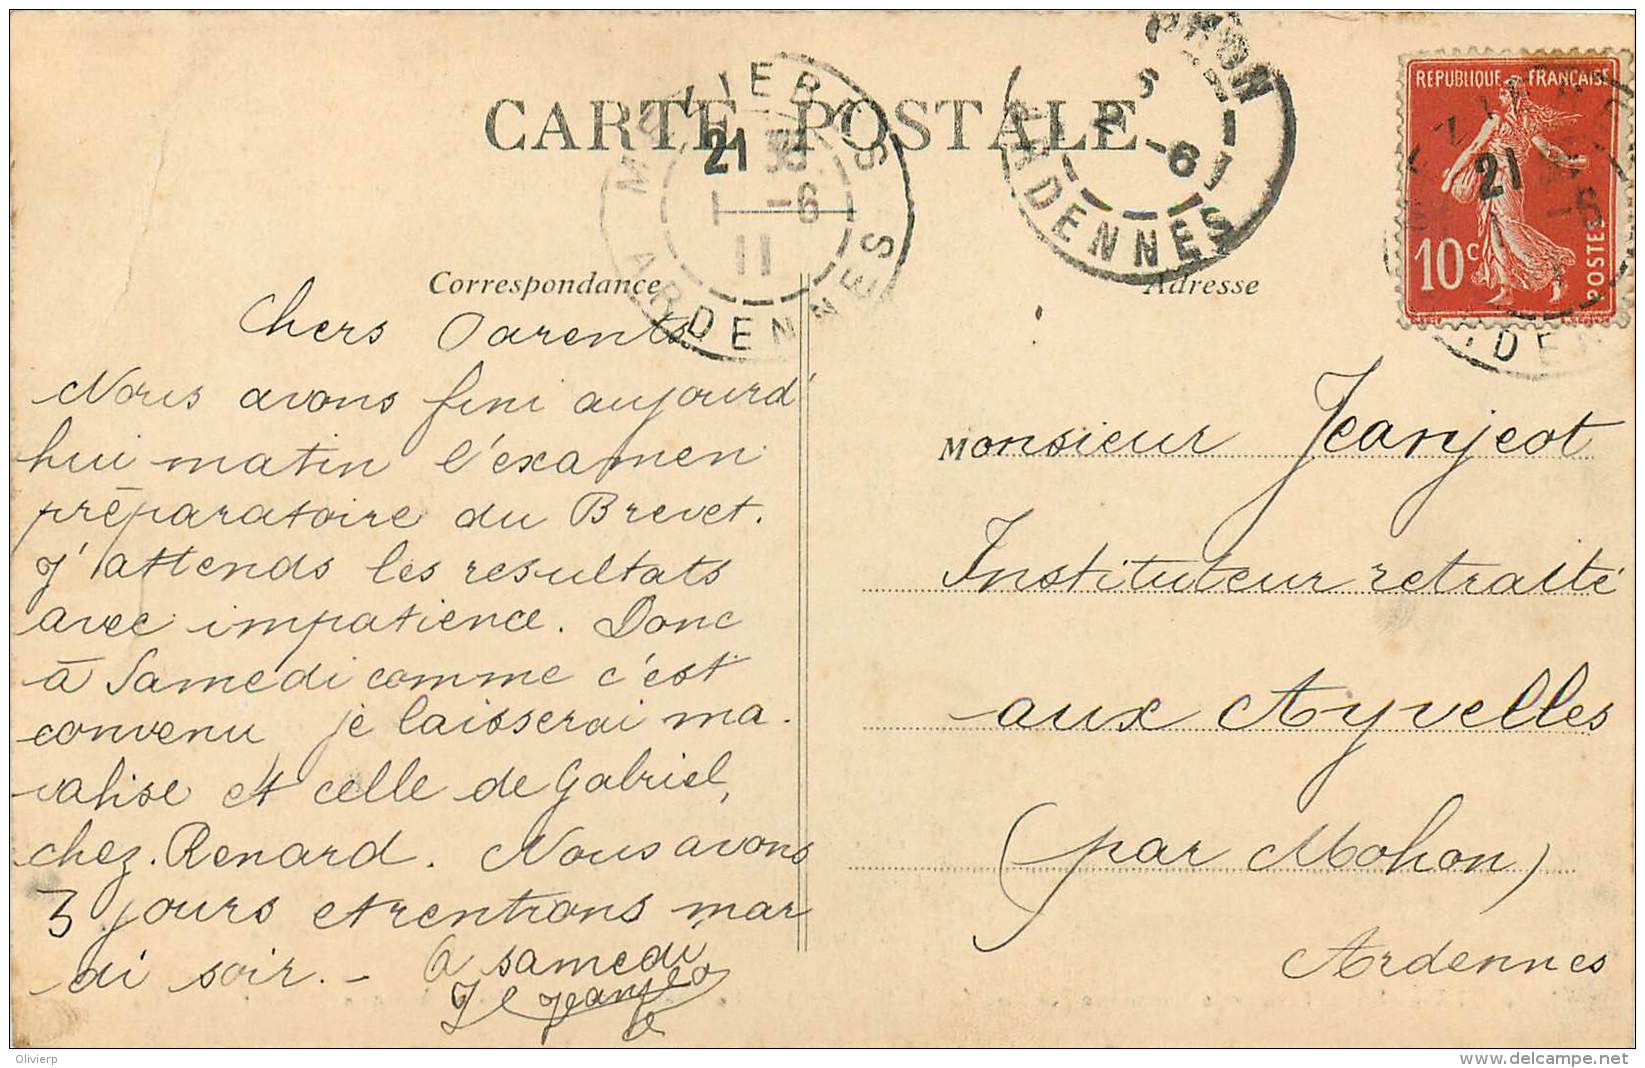 CARTE POSTALE
MÉZIÈRES
21
1 -6
11
ARDENNES
MOHON
-6
ARDENNES
REPUBLIQUE FRANÇAISE
21
10c
POSTES
Correspondance
Adresse
Chers Parents
Nous avons fini aujourd'
hui matin l'examen
préparatoire du Brevet.
J'attends les resultats
avec impatience. Donc
à Samedi comme c'est
convenu je laisserai ma
valise et celle de Gabriel,
chez Renard. Nous avons
3 jours et rentrons mar
di soir. - A samedi
Jeanjeot
Monsieur Jeanjeot
Instituteur retraité
aux Ayvelles
(par Mohon)
Ardennes
Olivierp
www.delcampe.net